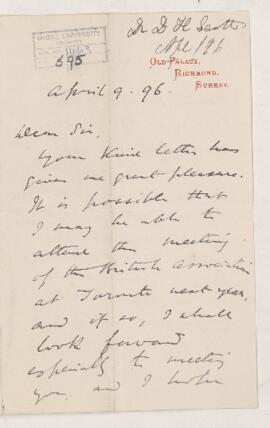 McGILL UNIVERSITY
1163
595
Dr D H Scott
Apl 1/96
OLD PALACE,
RICHMOND,
SURREY.
April 9. 96.
Dear Sir,
Your kind letter has
given me great pleasure.
It is possible that
I may be able to
attend the meeting
of the British Association
at Toronto next year,
and if so, I shall
look forward
especially to meeting
you, and I